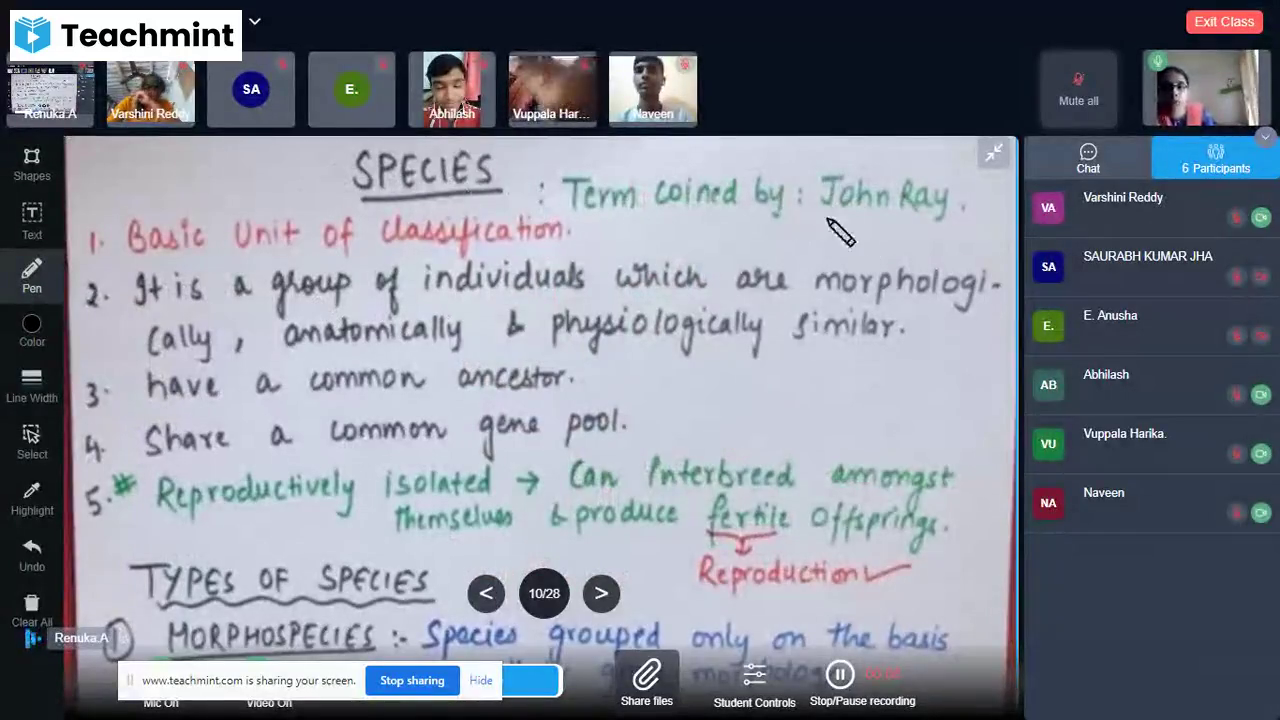 Teachmint
Exit Class
Renuka A
Varshini Reddy
SA
E.
Abhilash
Vuppala Har...
Naveen
Mute all
Shapes
Text
Pen
Color
Line Width
Select
Highlight
Undo
Clear All
SPECIES : Term coined by : John Ray.
1. Basic Unit of classification.
2. It is a group of individuals which are morphologi-
cally, anatomically & physiologically similar.
3. have a common ancestor.
4. Share a common gene pool.
5. # Reproductively isolated → Can Interbreed amongst
themselves & produce fertile Offsprings.
Reproduction ✓
TYPES OF SPECIES
1 MORPHOSPECIES :- Species grouped only on the basis
< 10/28 >
Renuka A
www.teachmint.com is sharing your screen. Stop sharing Hide
Mic On
Video On
Share files
Student Controls
Stop/Pause recording
Chat
6 Participants
VA Varshini Reddy
SA SAURABH KUMAR JHA
E. E. Anusha
AB Abhilash
VU Vuppala Harika.
NA Naveen